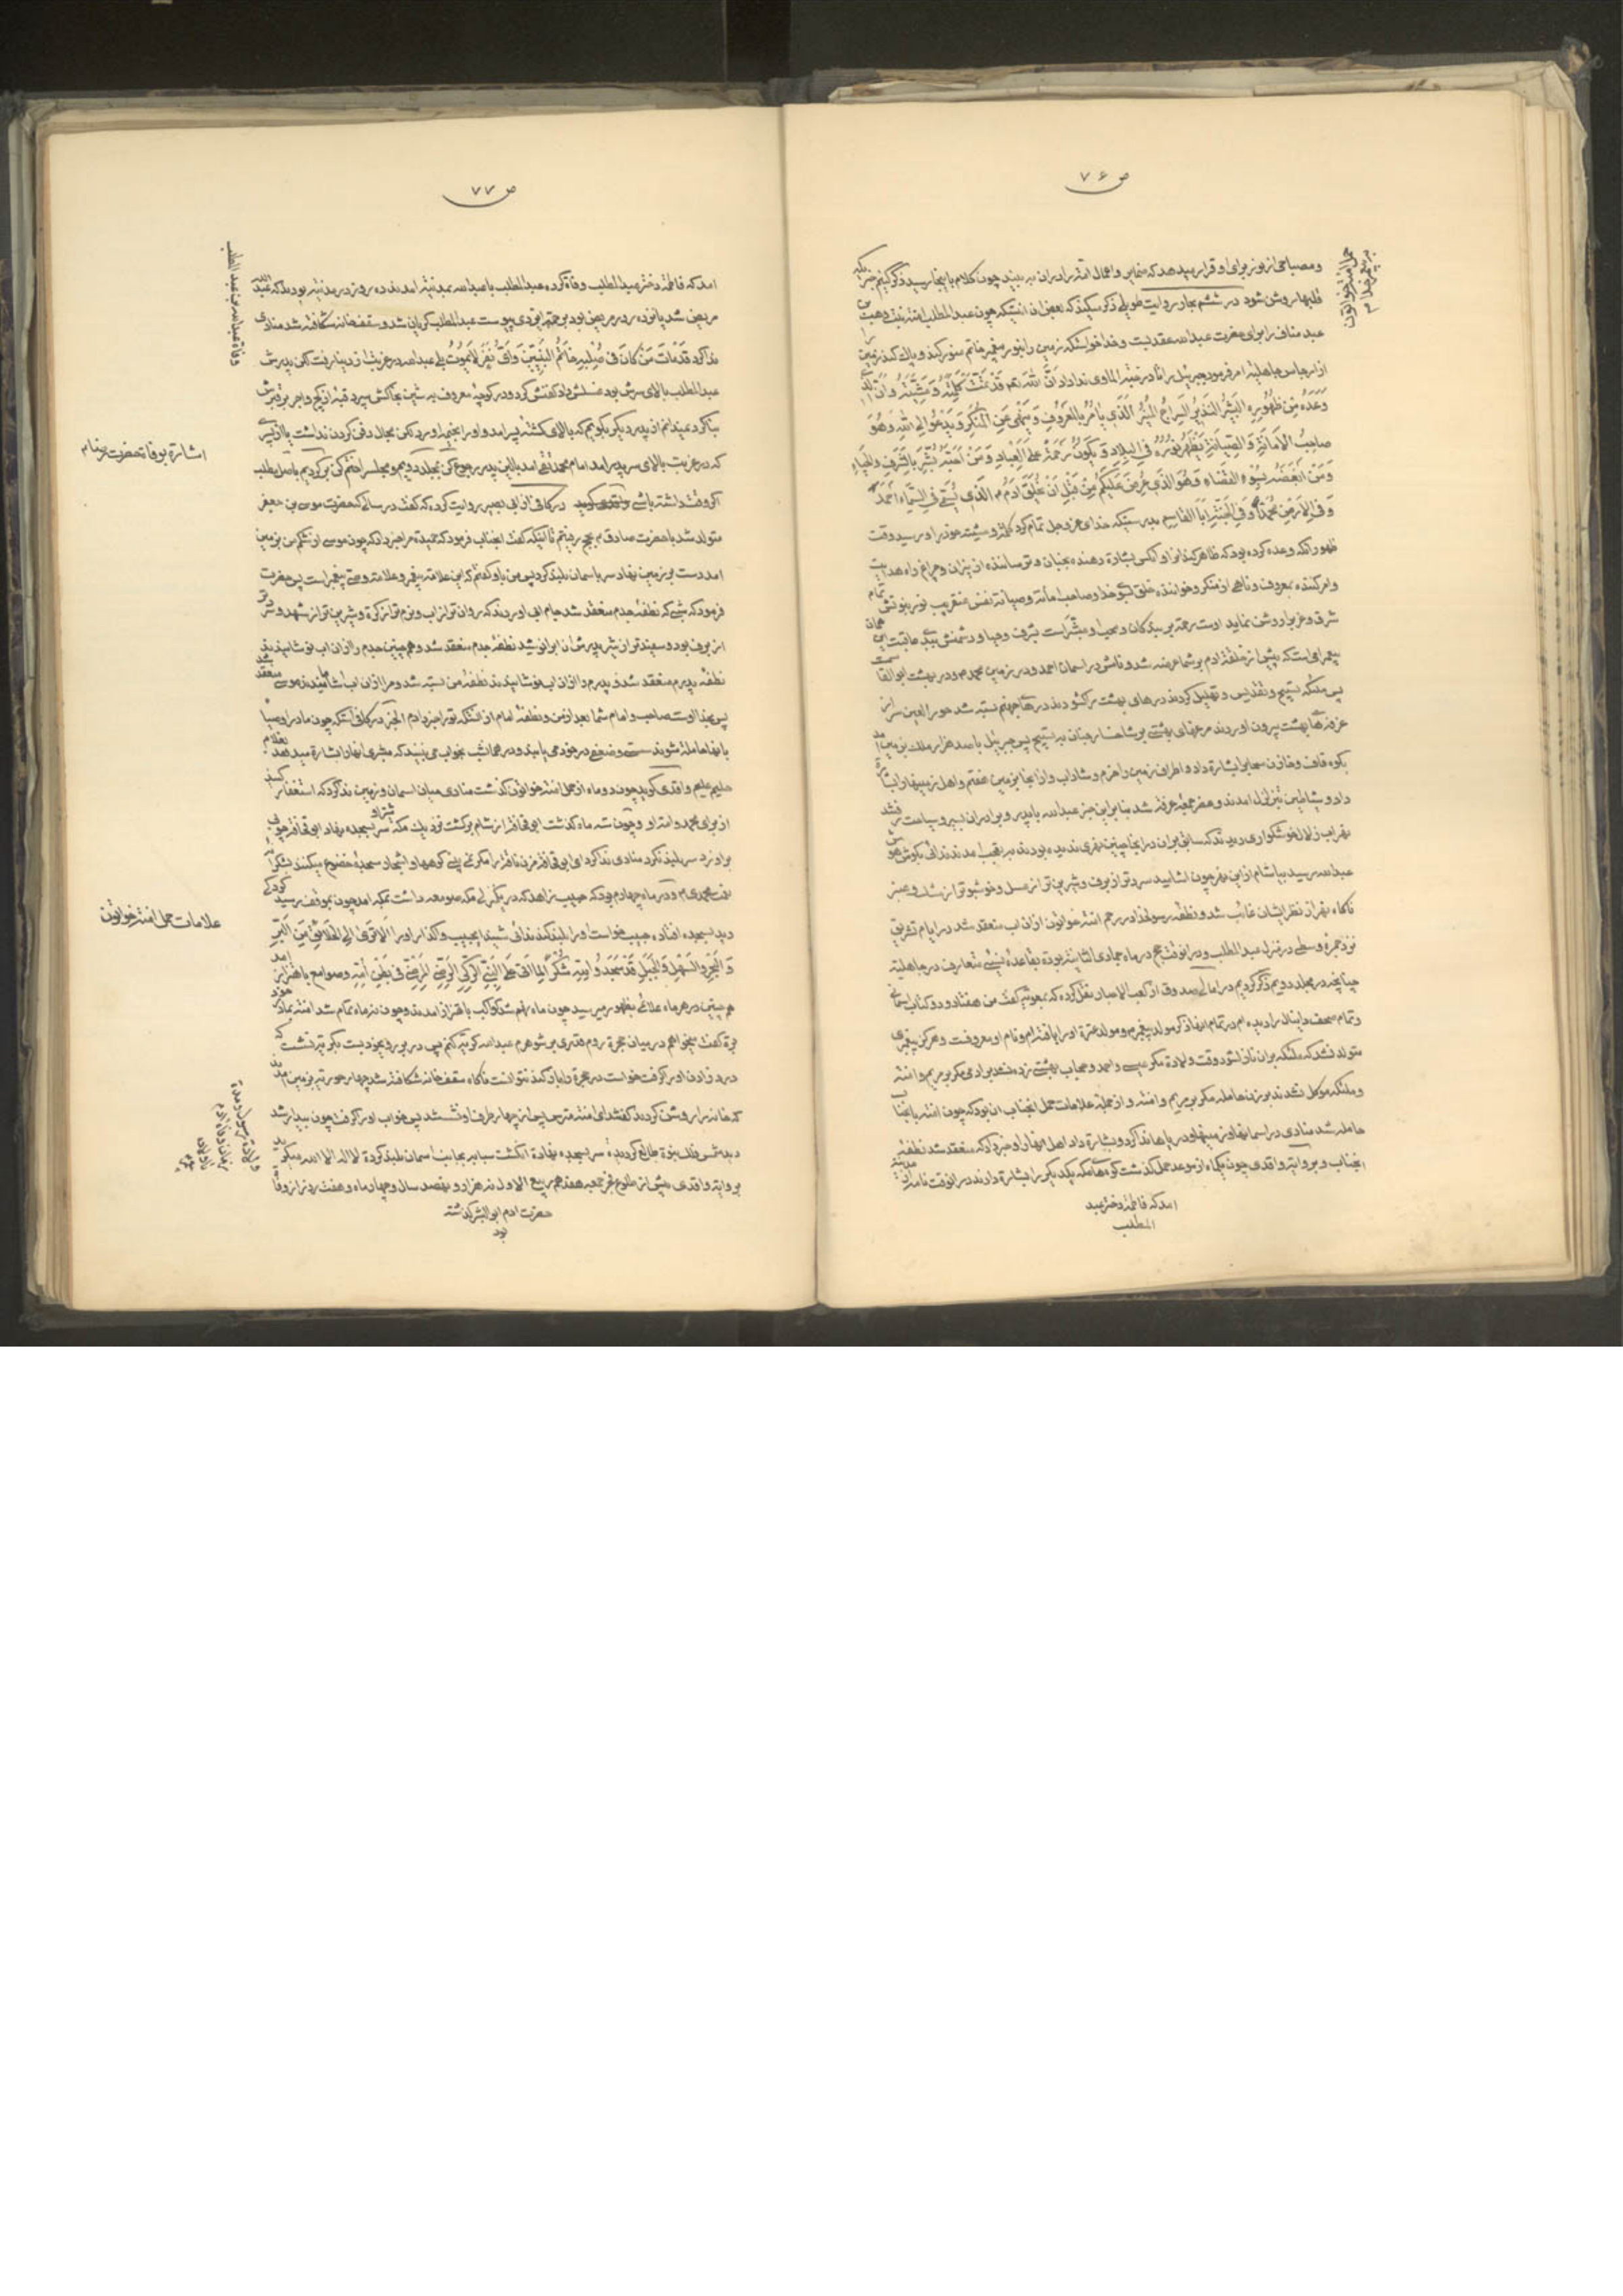 ص ۷۶
حمل آمنه خواتون
به پیغمبر خدا ص
و مصباحی از نور برای او قرار میدهد که ضمایر و اعمال امته را در آن به بیند چون کلام باینجا رسید ذکر کنیم
قلبها روشن شود در ششم بحار روایت طویلی ذکر میکند که بعض از آن اینستکه چون عبد المطلب آمنه بنت وهب
عبد مناف را برای حضرت عبد الله عقد بست و خدا خواست که زمین را بنور پیغمبر خاتم منور کند و پاک کند زمین
از ارجاس جاهلیة امر فرمود جبرئیل را تا در جنة المأوی ندا داد اَنَّ اللهَ قَدْ تَمَّتْ كَلِمَتُهُ وَمَشِيَّتُهُ وَاَنَّ
وَعَدَهُ مِنْ ظُهُورِهِ الْبَشِيرُ النَّذِيرُ السِّرَاجُ الْمُنِيرُ الَّذِي يَأمُرُ بِالْمَعْرُوفِ وَيَنْهَى عَنِ الْمُنْكَرِ وَيَدْعُو اِلَى اللهِ وَهُوَ
صَاحِبُ الْاَمَانَةِ وَالصِّيَانَةِ يَظْهَرُ نُورُهُ فِي الْبِلَادِ وَيَكُونُ رَحْمَةً عَلَى الْعِبَادِ وَمَنْ اَحَبَّهُ بُشِّرَ بِالشَّرَفِ وَالْحِبَاءِ
وَمَنْ اَبْغَضَهُ بِسُوءِ الْقَضَاءِ وَهُوَ الَّذِي عُرِضَ عَلَيْكُمْ مِنْ قَبْلِ اَنْ يُخْلَقَ اٰدَمُ الَّذِي يُسَمَّى فِي السَّمَاءِ اَحْمَدَ
وَفِي الْاَرْضِ مُحَمَّدًا وَفِي الْجَنَّةِ اَبَا الْقَاسِمِ بدرستیکه خدای عز و جل تمام کرد کلمه و مشیت خود را و رسید وقت
ظهور آنکه وعده کرده بود که ظاهر کند او را و آنکس بشارة دهنده بجنان و ترساننده از نیران و چراغ راه هدایت
وامر کننده بمعروف و ناهی از منکر و خواننده خلق بسوی خدا و صاحب امانة و صیانة نفس عنقریب نور نبوتش تمام
شرق و غرب را روشن نماید اوست رحمة بر بندگان و محب او مبشر است بشرف و حبا و دشمنش به بدی عاقبت این همان
پیغمبر است که پیش از خلقة آدم بر شما عرضه شد و نامش در آسمان احمد و در زمین محمد ص و در بهشت ابو القاسم است
پس ملئکه تسبیح و تقدیس و تهلیل کردند درهای بهشت را گشودند و درهای جهنم بسته شد حور العین سر از
غرفه های بهشت بیرون آوردند مرغهای بهشتی بر شاخسار جنان به تسبیح پس جبرئیل با صد هزار ملک بزمین آمد
بکوه قاف و خازن سحاب را بشارة داد و اطراف زمین را خرم و شاداب و از آنجا بزمین هفتم و اهل زمینها را بشارة
داد و شیاطین بتزلزل آمدند و عصر جمعه عرفه شد بنا بر این خبر عبد الله با پدر و برادران بسیر و سیاحت رفتند
بنهر آب زلال خوشگواری رسیدند که سابق بر آن در آنجا چنین نهری ندیده بودند بتعجب آمدند ندائی بگوش
عبد الله رسید بیاشام از این نهر چون آشامید سردتر از برف و شیرین تر از عسل و خوشبوتر از مشک و عنبر
ناگاه نهر از نظر ایشان غائب شد و نطفه رسولخدا در رحم آمنه خواتون از آن آب منعقد شد در ایام تشریق
نزد جمرة وسطی در منزل عبد المطلب و در آنوقت حج در ماه جمادی الثانیه بوده بقاعده نسیئ متعارف در جاهلیة
چنانچه در مجلد دویم ذکر کردیم در امالی صدوق از کعب الاحبار نقل کرده که بمعویه گفت من هفتاد و دو کتاب آسمانی
و تمام صحف دانیال را دیده ام در تمام آنها ذکر مولد پیغمبر و مولد عترة او را یافته ام و نام او معروفست و هرگز پیغمبری
متولد نشد که ملئکه بر آن نازل شود وقت ولادة مگر عیسی و احمد و حجاب بهشتی زده نشد برای زنی مگر بر مریم و آمنه
و ملئکه موکل نشدند بر زن حامله مگر بر مریم و آمنه و از جمله علامات حمل آنجناب آن بود که چون آمنه بآنجناب
حامله شد منادی در آسمانها و زمینها و دریاها ندا کرد و بشارة داد اهل آنها را و خبر داد که منعقد شد نطفه
آنجناب و بروایة واقدی چون یکماه از موعد حمل گذشت کوههای مکه یکدیگر را بشارة دادند در آنوقت نامه از مدینه
آمد که فاطمة دختر عبد
المطلب
ص ۷۷
وفاة عبد الله بن عبد المطلب
آمد که فاطمة دختر عبد المطلب وفاة کرده عبد المطلب با عبد الله بمدینة آمدند ده روز در مدینة بودند که عبد الله
مریض شد پانزده روز مریض بود برحمة ایزدی پیوست عبد المطلب گریان شد و سقف خانه شکافته شد منادی
ندا کرد قَدْ مَاتَ مَنْ كَانَ فِي صُلْبِهِ خَاتَمُ النَّبِيِّينَ وَاَيُّ نَفْسٍ لَا يَمُوتُ بلی عبد الله در غربت از دنیا رفت لکن پدرش
عبد المطلب بالای سرش بود غسلش داد کفنش کرد و در کوچه معروف به شین بخاکش سپرد قبه از گچ و آجر بر قبرش
بنا کرد نمیدانم از پدر دیگر بگویم که بالای کشته پسر آمد و او را بخیمه آورد لکن مجال دفن کردن نداشت یا از پسری
که در غربت بالای سر پدر آمد امام محمد تقی آمد ببالین پدر رجوع کن بمجلد دویم و مجلس را ختم کن برگردیم باصل مطلب
اگر وقت داشته باشی در کافی از ابی بصیر روایت کرده که گفت در سالیکه حضرت موسی بن جعفر
متولد شد با حضرت صادق ع بحج رفتم تا آنکه گفت آنجناب فرمود که حمیدة مرا خبر داد که چون موسی از شکم من بزمین
آمد دست بر زمین نهاد سر بآسمان بلند کرد پس من باو گفتم که این علامة پیغمبر و علامة وصی پیغمبر است پس حضرت
فرمود که شبی که نطفه جدم منعقد شد جام آبی آوردند که روان تر از آب و نرم تر از کره و شیرین تر از شهد و سردتر
از برف بود و سفیدتر از شیر پدرش آنرا نوشید نطفه جدم منعقد شد و همچنین جدم را از آن آب نوشانیدند
نطفه پدرم منعقد شد و پدرم را از آن آب نوشانیدند نطفه من بسته شد و مرا از آن آب آشامیدند موسی منعقد شد
پس بخدا اوست صاحب و امام شما بعد از من و نطفه امام از آنستکه تو را خبر دادم الخبر در کافی آنستکه چون مادر اوصیا
بآنها حامله شوند سستی و ضعفی در خود می یابند و در همانشب بخواب می بینند که مبشری آنها را بشارة میدهد بغلام
حلیم علیم واقدی گوید چون دو ماه از حمل آمنه خواتون گذشت منادی میان آسمان و زمین ندا کرد که استغفار کنید
از برای محمد و امة او و چون سه ماه گذشت ابو قحافة از شام برگشت نزدیک مکه شتر او سر بسجده نهاد ابو قحافة چوبی
بر او زد سر بلند نکرد منادی ندا کرد ای ابو قحافة مزن ناقه را مگر نمی بینی کوهها و اشجار سجده و خضوع میکنند بشکرانه
نعت محمدی ص و در ماه چهارم بود که حبیب زاهد که در یکمنزلی مکه صومعه داشت بمکه آمد چون بموقف رسید کودکی
دید بسجده افتاده حبیب خواست او را بلند کند ندائی شنید ای حبیب واگذار او را اَلَا تَرَى اِلَى الْخَلَائِقِ مِنَ الْبَرِّ
وَالْبَحْرِ وَالسَّهْلِ وَالْجَبَلِ قَدْ سَجَدُوا لِلّٰهِ شُكْرًا لِمَا اَتَى عَلَى النَّبِيِّ الزَّكِيِّ الرَّضِيِّ الْمَرْضِيِّ فِي بَطْنِ اُمِّهِ و صوامع باهتزاز آمد
همچنین در هر ماه علائمی بظهور میرسید چون ماه نهم شد کواکب باهتزاز آمدند و چون نه ماه تمام شد آمنه بمادر خود
برة گفت میخواهم در میان حجرة روم قدری بر شوهرم عبد الله گریه کنم پس در بروی خود بست بگریه نشست که
درد زادن او را گرفت خواست در حجرة را باز کند نتوانست ناگاه سقف خانه شکافته شد چهار حوریه بزمین آمدند
که خانه را روشن کردند گفتند ای آمنه مترس پس از چهار طرف او نشستند پس خواب او را گرفت چون بیدار شد
دید شمس فلک نبوة طالع گردیده سر بسجده نهادة انگشت سبابه بجانب آسمان بلند کرده لا اله الا الله میگوید
بروایة واقدی پیش از طلوع فجر جمعه هفدهم ربیع الاول نه هزار و نهصد سال و چهار ماه و هفت روز از وفات
حضرت آدم ابو البشر گذشته
بود
اشارة بوفات حضرت رضا ع
علامات حمل آمنه خواتون